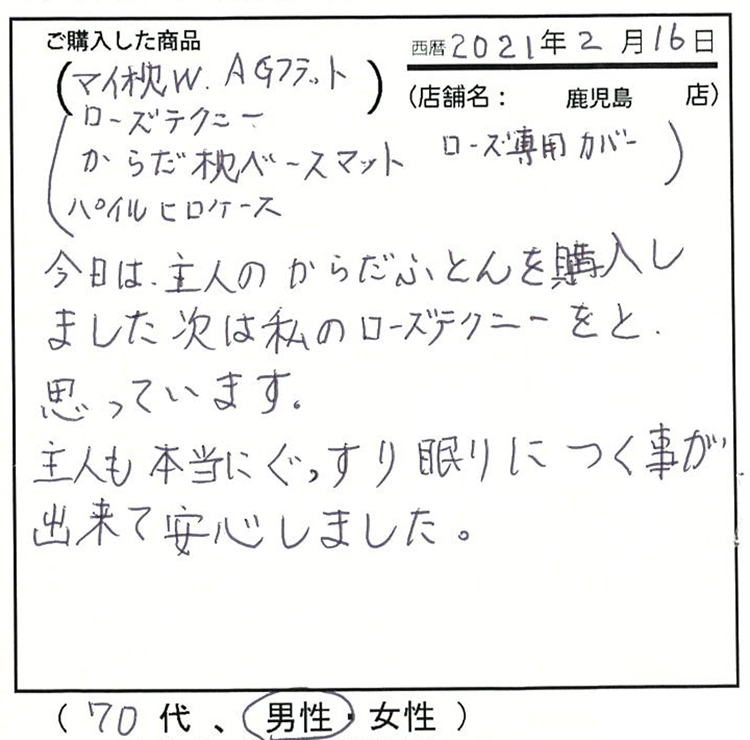 ご購入した商品
西暦2021年2月16日
(マイ枕W. AGフラット)
(店舗名: 鹿児島 店)
(ローズテクニー
からだ枕ベースマット ローズ専用カバー)
パイルヒロケース
今日は、主人のからだふとんを購入し
ました次は私のローズテクニーをと.
思っています。
主人も本当にぐっすり眠りにつく事が
出来て安心しました。
(70代、男性・女性)